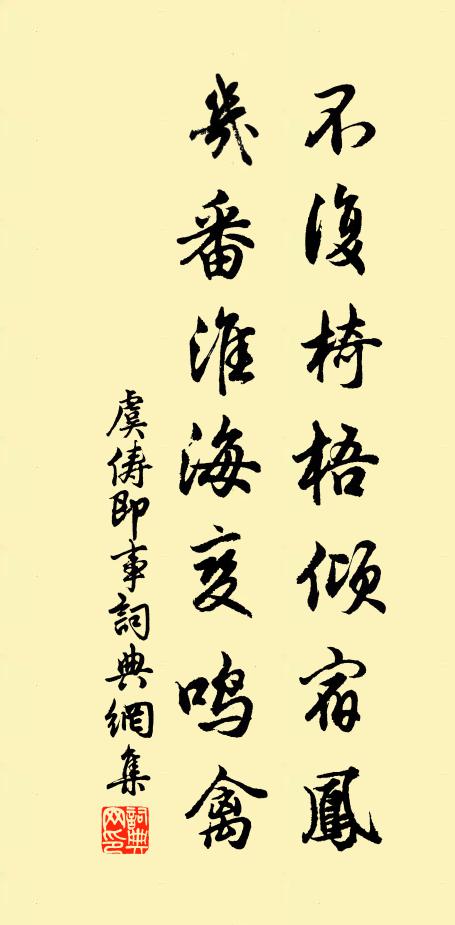 不復椅梧傾宿鳳
幾番淮海变鳴禽
虞儔即事詞典網集
詞典網印